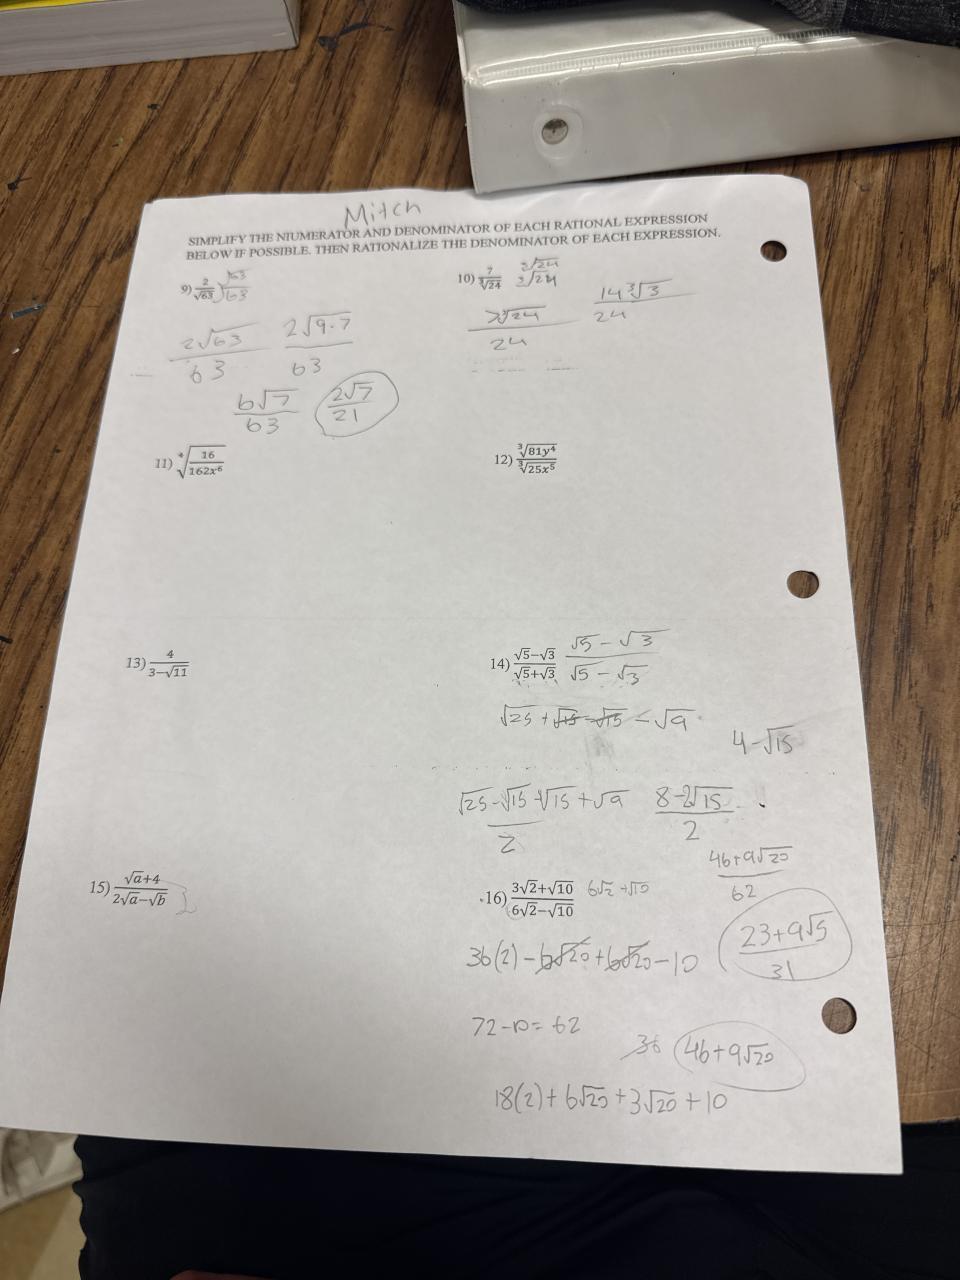 Mitch
SIMPLIFY THE NIUMERATOR AND DENOMINATOR OF EACH RATIONAL EXPRESSION
BELOW IF POSSIBLE. THEN RATIONALIZE THE DENOMINATOR OF EACH EXPRESSION.
9) 2/√63 √63/√63
2√63/63 2√9·7/63
6√7/63 2√7/21
10) 7/∛24 ∛24/∛24
7∛24/24 14∛3/24
11) ⁴√(16/162x⁶)
12) ∛81y⁴/∛25x⁵
13) 4/(3−√11)
14) (√5−√3)/(√5+√3) (√5−√3)/(√5−√3)
√25 + √15 − √15 − √9
4−√15
(√25−√15−√15+√9)/2 (8−2√15)/2
15) (√a+4)/(2√a−√b)
16) (3√2+√10)/(6√2−√10) 6√2+√10
(46+9√20)/62
36(2) − 6√20 + 6√20 − 10
(23+9√5)/31
72−10=62
36 46+9√20
18(2) + 6√20 + 3√20 + 10